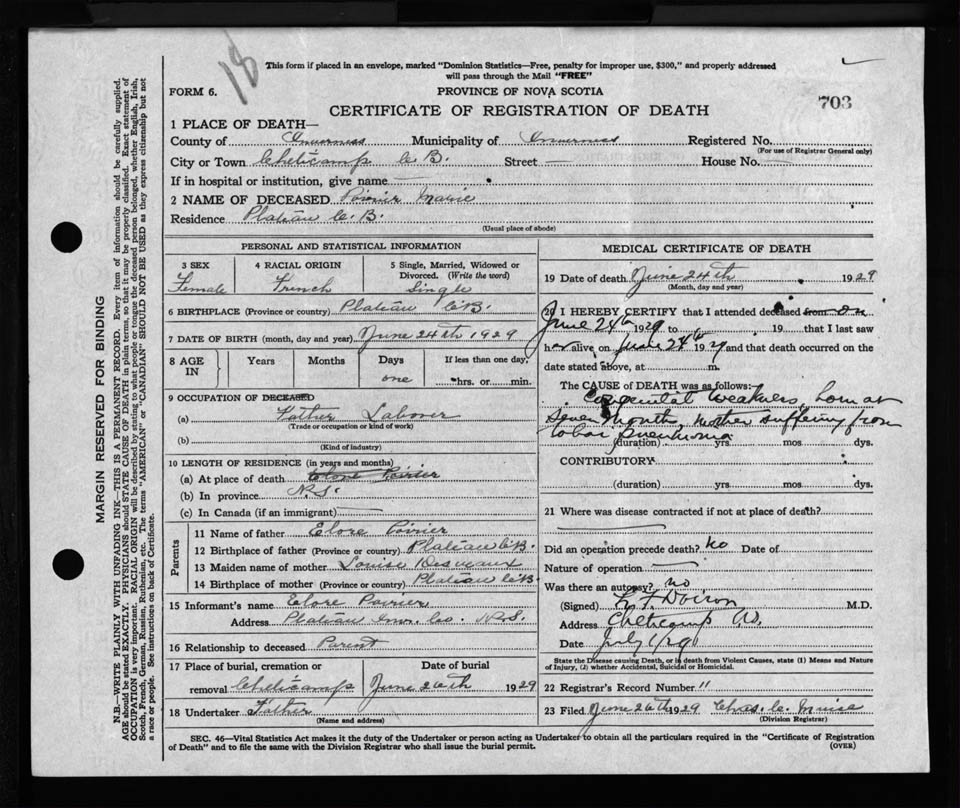 18
This form if placed in an envelope, marked "Dominion Statistics—Free, penalty for improper use, $300," and properly addressed
will pass through the Mail "FREE"
FORM 6.
PROVINCE OF NOVA SCOTIA
703
CERTIFICATE OF REGISTRATION OF DEATH
1 PLACE OF DEATH—
County of Inverness Municipality of Inverness Registered No.
(For use of Registrar General only)
City or Town Cheticamp C.B. Street — House No. —
If in hospital or institution, give name —
2 NAME OF DECEASED Poirier Marie
Residence Plateau C.B.
(Usual place of abode)
PERSONAL AND STATISTICAL INFORMATION
3 SEX 4 RACIAL ORIGIN 5 Single, Married, Widowed or
Divorced. (Write the word)
Female French Single
6 BIRTHPLACE (Province or country) Plateau C.B.
7 DATE OF BIRTH (month, day and year) June 24th 1929
8 AGE IN Years Months Days If less than one day,
one hrs. or min.
9 OCCUPATION OF DECEASED
(a) Father Laborer
(Trade or occupation or kind of work)
(b)
(Kind of industry)
10 LENGTH OF RESIDENCE (in years and months)
(a) At place of death Elore Poirier
(b) In province N.S.
(c) In Canada (if an immigrant) —
Parents
11 Name of father Elore Poirier
12 Birthplace of father (Province or country) Plateau C.B.
13 Maiden name of mother Louise Desveaux
14 Birthplace of mother (Province or country) Plateau C.B.
15 Informant's name Elore Poirier
Address Plateau Inv. Co. N.S.
16 Relationship to deceased Parent
17 Place of burial, cremation or Date of burial
removal Cheticamp June 26th 1929
18 Undertaker Father
(Name and address)
MEDICAL CERTIFICATE OF DEATH
19 Date of death June 24th 1929
(Month, day and year)
20 I HEREBY CERTIFY that I attended deceased from on
June 24th 1929 to 19 that I last saw
her alive on June 24th 1929 and that death occurred on the
date stated above, at m.
The CAUSE of DEATH was as follows:
Congenital weakness, born at
seven months, mother suffering from
lobar pneumonia
(duration) yrs mos dys.
CONTRIBUTORY
(duration) yrs mos dys.
21 Where was disease contracted if not at place of death?
Did an operation precede death? No Date of
Nature of operation —
Was there an autopsy? no
(Signed) Doiron M.D.
Address Cheticamp
Date July 1/29
State the Disease causing Death, or in death from Violent Causes, state (1) Means and Nature
of Injury, (2) whether Accidental, Suicidal or Homicidal.
22 Registrar's Record Number 11
23 Filed June 26th 1929 Chas. C.
(Division Registrar)
SEC. 46—Vital Statistics Act makes it the duty of the Undertaker or person acting as Undertaker to obtain all the particulars required in the "Certificate of Registration
of Death" and to file the same with the Division Registrar who shall issue the burial permit.
(OVER)
MARGIN RESERVED FOR BINDING
N.B.—WRITE PLAINLY WITH UNFADING INK—THIS IS A PERMANENT RECORD. Every item of information should be carefully supplied.
AGE should be stated EXACTLY. PHYSICIANS should STATE CAUSE OF DEATH in plain terms, so that it may be properly classified. Exact statement of
OCCUPATION is very important. RACIAL ORIGIN will be described by stating to what people or tongue the deceased person belonged, whether English, Irish,
Scotch, French, German, Russian, Ruthenian, etc. The terms "AMERICAN" or "CANADIAN" SHOULD NOT BE USED as they express citizenship but not
a race or people. See instructions on back of Certificate.